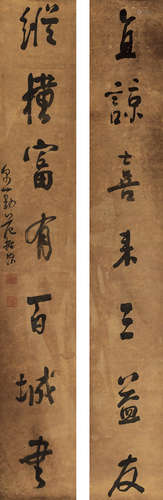 直諒喜來三益友
縱橫富有百城書